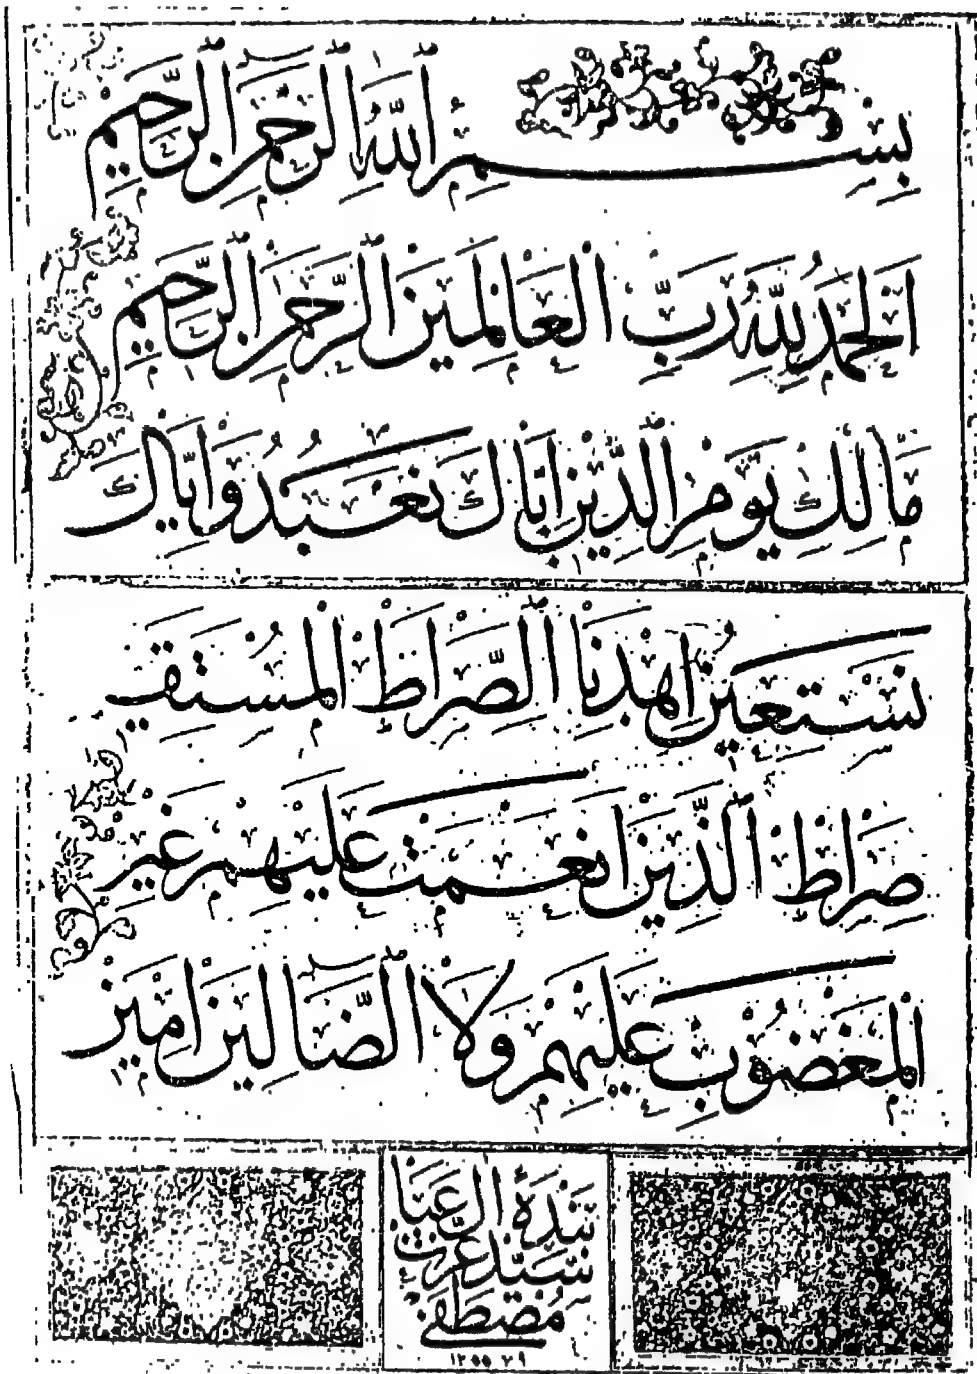 بِسْمِ اللَّهِ الرَّحْمَنِ الرَّحِيمِ
اَلْحَمْدُ لِلَّهِ رَبِّ الْعَالَمِينَ الرَّحْمَنِ الرَّحِيمِ
مَالِكِ يَوْمِ الدِّينِ اِيَّاكَ نَعْبُدُ وَاِيَّاكَ
نَسْتَعِينُ اِهْدِنَا الصِّرَاطَ الْمُسْتَقِي
صِرَاطَ الَّذِينَ اَنْعَمْتَ عَلَيْهِمْ غَيْرِ
الْمَغْضُوبِ عَلَيْهِمْ وَلَا الضَّالِّينَ اٰمِينَ
بنده ال عبا
سيد عزت
مصطفى